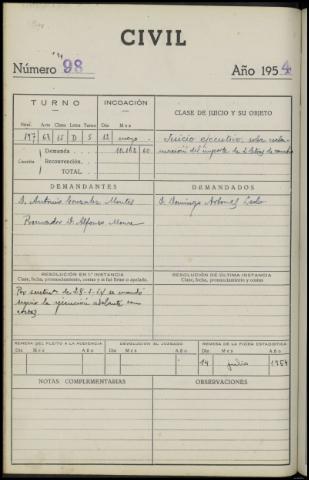 CIVIL
Número 98 Año 1954
TURNO INCOACIÓN CLASE DE JUICIO Y SU OBJETO
Núm. Año Clase Letra Tomo Día Mes
197 63 15 D 5 12 mayo. Juicio ejecutivo sobre
Demanda 11.162 60 del importe de 2 letras de cambio
Cuantía Reconvención.
TOTAL
DEMANDANTES DEMANDADOS
D. Antonio Gonzalez Montes D. Domingo
Procurador D. Alfonso
RESOLUCIÓN EN 1.ª INSTANCIA RESOLUCIÓN DE ÚLTIMA INSTANCIA
Clase, fecha, pronunciamiento, costas y si fué firme o apelado. Clase, fecha, pronunciamiento y costas
Por sentencia de se mandó
seguir la ejecución adelante con
costas
REMESA DEL PLEITO A LA AUDIENCIA DEVOLUCIÓN AL JUZGADO REMESA DE LA FICHA ESTADÍSTICA
Día Mes Año Día Mes Año Día Mes Año
14 julio 1954
NOTAS COMPLEMENTARIAS OBSERVACIONES